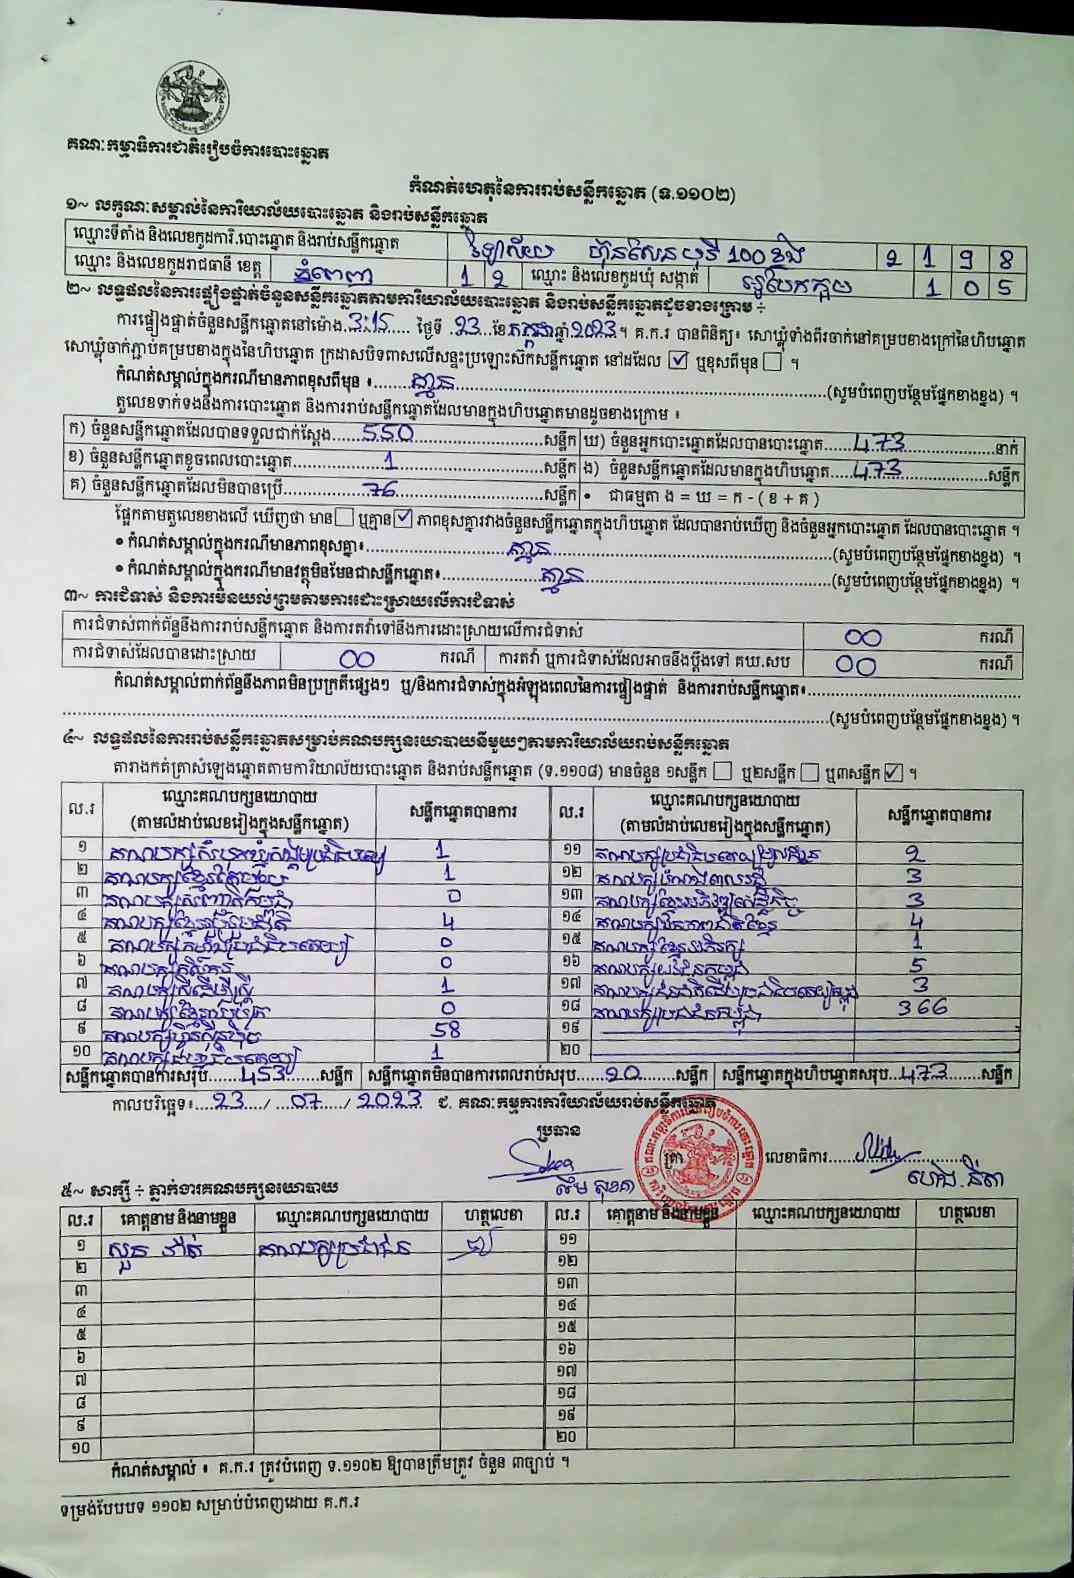 គណៈកម្មាធិការជាតិរៀបចំការបោះឆ្នោត
កំណត់ហេតុនៃការរាប់សន្លឹកឆ្នោត (ទ.១១០២)
១~ លក្ខណៈសម្គាល់នៃការិយាល័យបោះឆ្នោត និងរាប់សន្លឹកឆ្នោត
ឈ្មោះទីតាំង និងលេខកូដការិ.បោះឆ្នោត និងរាប់សន្លឹកឆ្នោត វិទ្យាល័យ ហ៊ុនសែន បុរី 100ខ្នង 2 1 9 8
ឈ្មោះ និងលេខកូដរាជធានី ខេត្ត ភ្នំពេញ 1 2 ឈ្មោះ និងលេខកូដឃុំ សង្កាត់ អូរបែកក្អម 1 0 5
២~ លទ្ធផលនៃការផ្ទៀងផ្ទាត់ចំនួនសន្លឹកឆ្នោតតាមការិយាល័យបោះឆ្នោត និងរាប់សន្លឹកឆ្នោតដូចខាងក្រោម ÷
ការផ្ទៀងផ្ទាត់ចំនួនសន្លឹកឆ្នោតនៅម៉ោង 3:15 ថ្ងៃទី 23 ខែ កក្កដា ឆ្នាំ 2023 ។ គ.ក.រ បានពិនិត្យ៖ សោឃ្លុំទាំងពីរចាក់នៅគម្របខាងក្រៅនៃហិបឆ្នោត
សោឃ្លុំចាក់ភ្ជាប់គម្របខាងក្នុងនៃហិបឆ្នោត ក្រដាសបិទពាសលើសន្ទះប្រឡោះស៊កសន្លឹកឆ្នោត នៅដដែល ☑ ឬខុសពីមុន ☐ ។
កំណត់សម្គាល់ក្នុងករណីមានភាពខុសពីមុន ៖ គ្មាន (សូមបំពេញបន្ថែមផ្នែកខាងខ្នង) ។
តួលេខទាក់ទងនឹងការបោះឆ្នោត និងការរាប់សន្លឹកឆ្នោតដែលមានក្នុងហិបឆ្នោតមានដូចខាងក្រោម ៖
ក) ចំនួនសន្លឹកឆ្នោតដែលបានទទួលជាក់ស្តែង 550 សន្លឹក ឃ) ចំនួនអ្នកបោះឆ្នោតដែលបានបោះឆ្នោត 473 នាក់
ខ) ចំនួនសន្លឹកឆ្នោតខូចពេលបោះឆ្នោត 1 សន្លឹក ង) ចំនួនសន្លឹកឆ្នោតដែលមានក្នុងហិបឆ្នោត 473 សន្លឹក
គ) ចំនួនសន្លឹកឆ្នោតដែលមិនបានប្រើ 76 សន្លឹក • ជាធម្មតា ង = ឃ = ក - ( ខ + គ )
ផ្អែកតាមតួលេខខាងលើ ឃើញថា មាន ☐ ឬគ្មាន ☑ ភាពខុសគ្នារវាងចំនួនសន្លឹកឆ្នោតក្នុងហិបឆ្នោត ដែលបានរាប់ឃើញ និងចំនួនអ្នកបោះឆ្នោត ដែលបានបោះឆ្នោត ។
• កំណត់សម្គាល់ក្នុងករណីមានភាពខុសគ្នា៖ គ្មាន (សូមបំពេញបន្ថែមផ្នែកខាងខ្នង) ។
• កំណត់សម្គាល់ក្នុងករណីមានវត្ថុមិនមែនជាសន្លឹកឆ្នោត៖ គ្មាន (សូមបំពេញបន្ថែមផ្នែកខាងខ្នង) ។
៣~ ការជំទាស់ និងការមិនយល់ព្រមតាមការដោះស្រាយលើការជំទាស់
ការជំទាស់ពាក់ព័ន្ធនឹងការរាប់សន្លឹកឆ្នោត និងការតវ៉ាទៅនឹងការដោះស្រាយលើការជំទាស់ 00 ករណី
ការជំទាស់ដែលបានដោះស្រាយ 00 ករណី ការតវ៉ា ឬការជំទាស់ដែលអាចនឹងប្តឹងទៅ គឃ.សប 00 ករណី
កំណត់សម្គាល់ពាក់ព័ន្ធនឹងភាពមិនប្រក្រតីផ្សេងៗ ឬ/និងការជំទាស់ក្នុងអំឡុងពេលនៃការផ្ទៀងផ្ទាត់ និងការរាប់សន្លឹកឆ្នោត៖
(សូមបំពេញបន្ថែមផ្នែកខាងខ្នង) ។
៤~ លទ្ធផលនៃការរាប់សន្លឹកឆ្នោតសម្រាប់គណបក្សនយោបាយនីមួយៗតាមការិយាល័យរាប់សន្លឹកឆ្នោត
តារាងកត់ត្រាសំឡេងឆ្នោតតាមការិយាល័យបោះឆ្នោត និងរាប់សន្លឹកឆ្នោត (ទ.១១០៨) មានចំនួន ១សន្លឹក ☐ ឬ២សន្លឹក ☐ ឬ៣សន្លឹក ☑ ។
ល.រ ឈ្មោះគណបក្សនយោបាយ (តាមលំដាប់លេខរៀងក្នុងសន្លឹកឆ្នោត) សន្លឹកឆ្នោតបានការ ល.រ ឈ្មោះគណបក្សនយោបាយ (តាមលំដាប់លេខរៀងក្នុងសន្លឹកឆ្នោត) សន្លឹកឆ្នោតបានការ
១ គណបក្សសំបុកឃ្មុំសង្គមប្រជាធិបតេយ្យ 1 ១១ គណបក្ស 2
២ គណបក្សខ្មែរ 1 ១២ គណបក្ស 3
៣ គណបក្ស 0 ១៣ គណបក្សខ្មែរអភិវឌ្ឍន៍សេដ្ឋកិច្ច 3
៤ គណបក្សខ្មែររួបរួមជាតិ 4 ១៤ គណបក្សឯកភាពជាតិខ្មែរ 4
៥ គណបក្សកម្លាំងប្រជាធិបតេយ្យ 0 ១៥ គណបក្សខ្មែរអភិរក្ស 1
៦ គណបក្សកសិករ 0 ១៦ គណបក្សយុវជនកម្ពុជា 5
៧ គណបក្សស្ត្រីដើម្បីស្ត្រី 1 ១៧ គណបក្ស 3
៨ គណបក្សខ្មែរ 0 ១៨ គណបក្សប្រជាជនកម្ពុជា 366
៩ គណបក្សហ្វ៊ុនស៊ិនប៉ិច 58 ១៩
១០ គណបក្ស 1 ២០
សន្លឹកឆ្នោតបានការសរុប 453 សន្លឹក សន្លឹកឆ្នោតមិនបានការពេលរាប់សរុប 20 សន្លឹក សន្លឹកឆ្នោតក្នុងហិបឆ្នោតសរុប 473 សន្លឹក
កាលបរិច្ឆេទ៖ 23 / 07 / 2023 ជ. គណៈកម្មការការិយាល័យរាប់សន្លឹកឆ្នោត
ប្រធាន ត្រា លេខាធិការ
លឹម សុខគា
៥~ សាក្សី ÷ ភ្នាក់ងារគណបក្សនយោបាយ
ល.រ គោត្តនាម និងនាមខ្លួន ឈ្មោះគណបក្សនយោបាយ ហត្ថលេខា ល.រ គោត្តនាម និងនាមខ្លួន ឈ្មោះគណបក្សនយោបាយ ហត្ថលេខា
១ សួន គណបក្សប្រជាជន ១១
២ ១២
៣ ១៣
៤ ១៤
៥ ១៥
៦ ១៦
៧ ១៧
៨ ១៨
៩ ១៩
១០ ២០
កំណត់សម្គាល់ ៖ គ.ក.រ ត្រូវបំពេញ ទ.១១០២ ឱ្យបានត្រឹមត្រូវ ចំនួន ៣ច្បាប់ ។
ទម្រង់បែបបទ ១១០២ សម្រាប់បំពេញដោយ គ.ក.រ